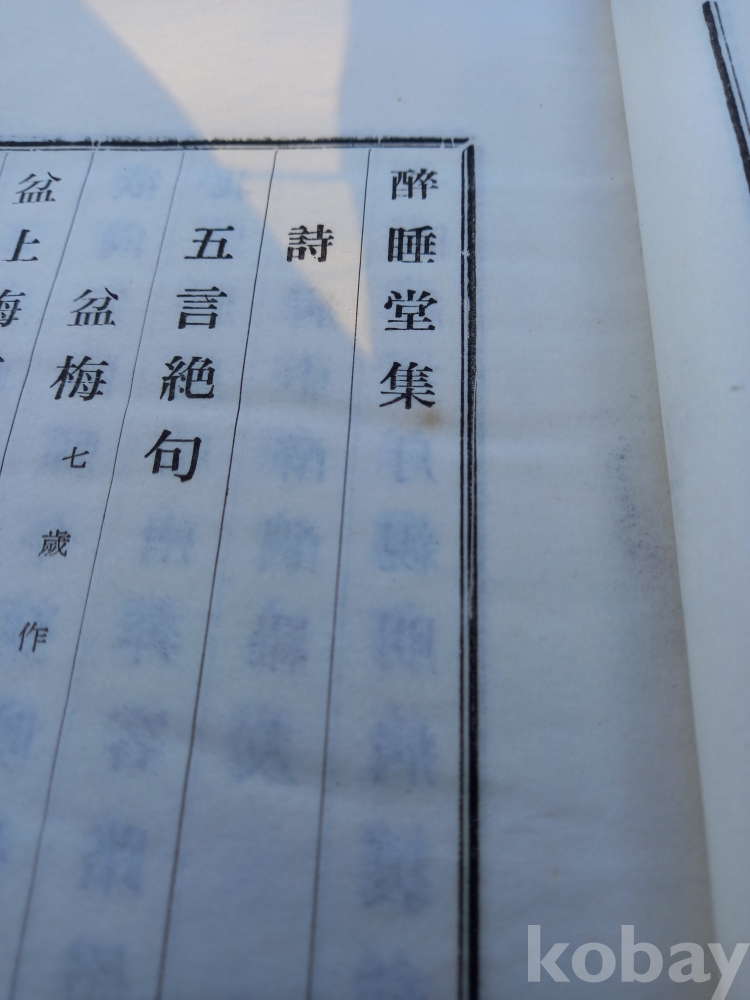 醉睡堂集
詩
五言絶句
盆梅 七歲作
盆上梅
kobay